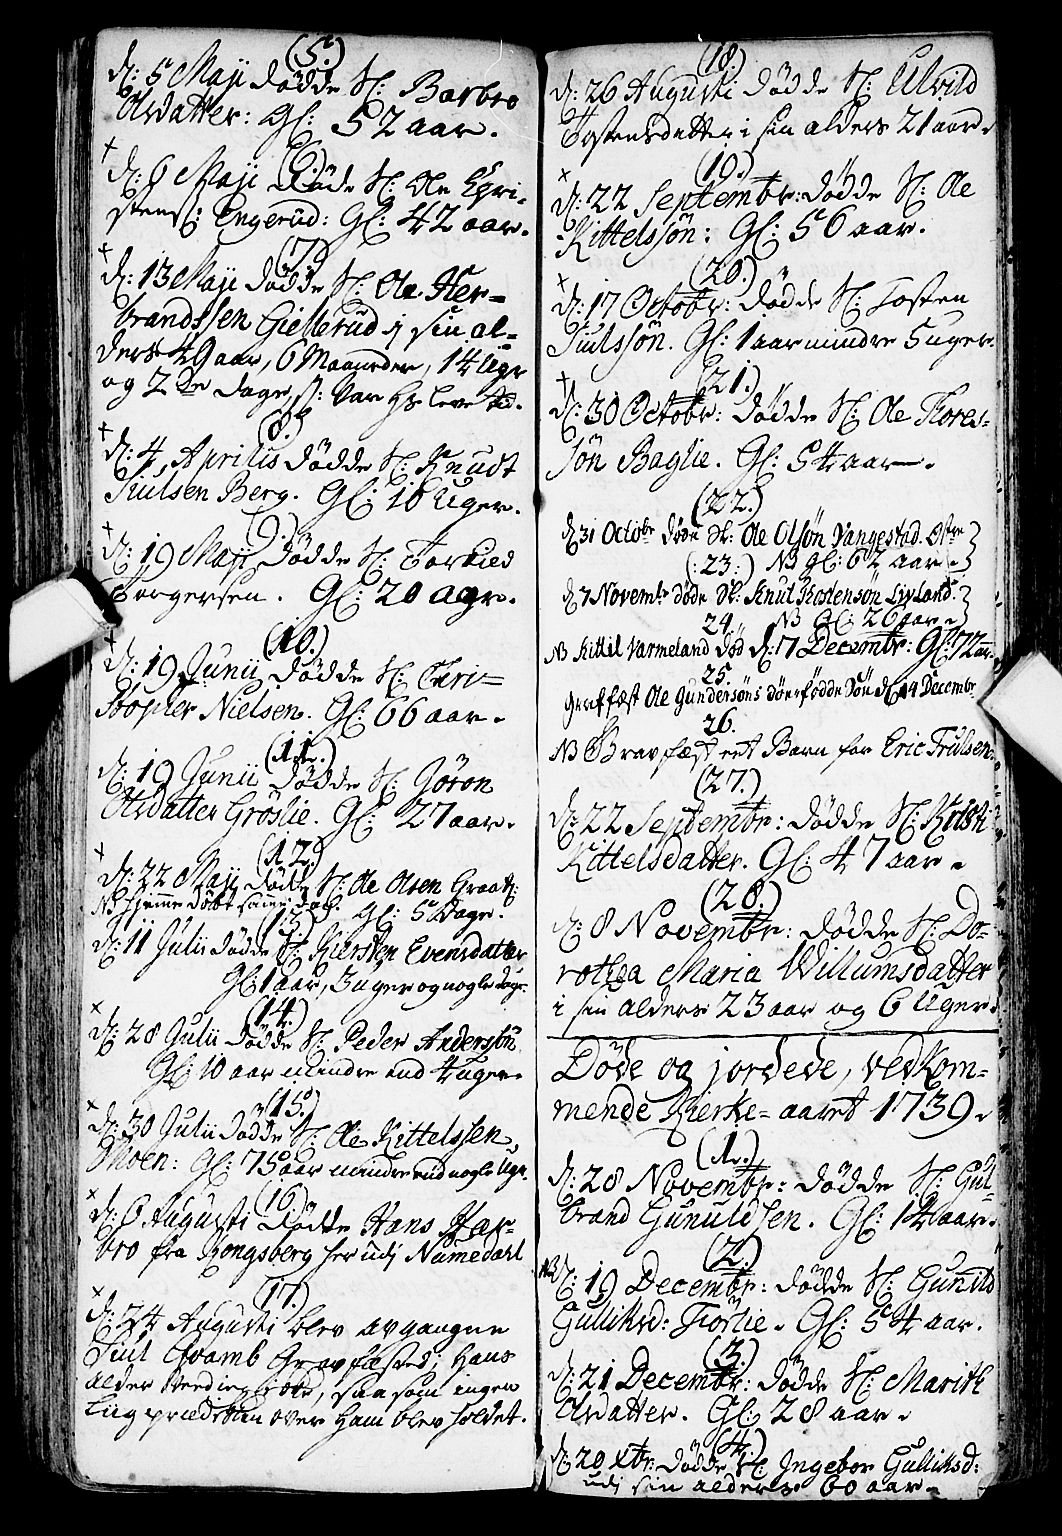 (5.)
d: 5 Maji dödde Sl: Barbro
Olsdatter: Gl: 52 aar.
(6.)
d: 6 Maji Dödde Sl: Ole Chri-
stens: Engerud: Gl: 42 aar.
(7.)
d: 13 Maji dödde Sl: Ole Her-
brandssen Giellerud j sin al-
ders 49 aar, 6 Maaneder, 14 Uger
og 2de Dage, s: var hs leve tid.
8.
d: 4 Aprilis dödde Sl: Knudt
Juulsen Berg. Gl: 10 Uger.
(9.)
d: 19 Maji Dödde Sl: Torkied
Torgersen. Gl: 20 aar.
(10.)
d: 19 Junii dödde Sl: Chri-
stopher Nielsen. Gl: 66 aar.
(11.)
d: 19 Junii dödde Sl: Jöron
Olsdatter Gröslie. Gl: 27 aar.
(12.)
d: 22 Maji dödde Sl: Ole Olsen Graat:
NB hjemme döbt samme dag. Gl: 5 Dage.
(13.)
d: 11 Julii dödde Sl: Kiersten Evensdatter
Gl: 1 aar, 3 uger og nogle dage.
(14.)
d: 28 Julii dödde Sl: Peder Andersön
Gl: 10 aar mindre end 4 uger.
(15.)
d: 30 Julii dödde Sl: Ole Kittelssen
Moen: Gl: 75 aar mindre end nogle Uger.
(16)
d: 6 Augusti Dödde Hans Har-
bro fra Kongsberg her udj Numedarl
(17.)
d: 24 Augusti blev afgangne
Juul Gvamb Gravfæsted, hans
alder saasom ingen
liig prædiken over ham blev holdet.
(18.)
d: 26 Augusti dödde Sl: Alvild
Tostensdatter i sin alders 21 aar.
(19.)
d: 22 Septembr: dödde Sl: Ole
Kittelssön: Gl: 56 aar.
(20.)
d: 17 Octobr: dödde Sl: Tosten
Juulssön. Gl: 1 aar mindre 5 uger.
(21.)
d: 30 Octobr: dödde Sl: Ole Thores-
sön Baglie. Gl: 54 aar.
(22.)
d 31 Octobr döde Sl: Ole Olsön Vangestad. Östre
(:23:) NB gl: 62 aar
d 7 Novembr döde Sl: Knut Livland
24. NB gl: 26 aar
NB Kittil Varmeland död d: 17 Decembr: Gl: 72 ar.
25.
Gravfæst Ole Gundersöns dödfödde Sön d 14 Decembr
26.
NB Gravfæst eet Barn for Eric Trulsen.
(27.)
d: 22 Septembr: dödde Sl: Kitsk
Kittelsdatter. Gl: 47 aar.
(28.)
d: 8 Novembr: dödde Sl: Do-
rothea Maria Willumsdatter
i sin alders 23 aar og 6 Uger.
Döde og jordede, vedkom-
mende Kierke-aaret 1739.
(1.)
d: 28 Novembr: dödde Sl: Gul-
brand Gunuldsen. Gl: 14 aar.
(2.)
NB d: 19 Decembr: dödde Sl: Gunild
Gulliksd: Torlie. Gl: 54 aar.
(3.)
d: 21 Decembr: dödde Sl: Marith
Olsdatter. Gl: 28 aar.
(4.)
d: 20 Xbr: dödde Sl: Ingebor Gulliksd:
udj sin alders 60 aar.